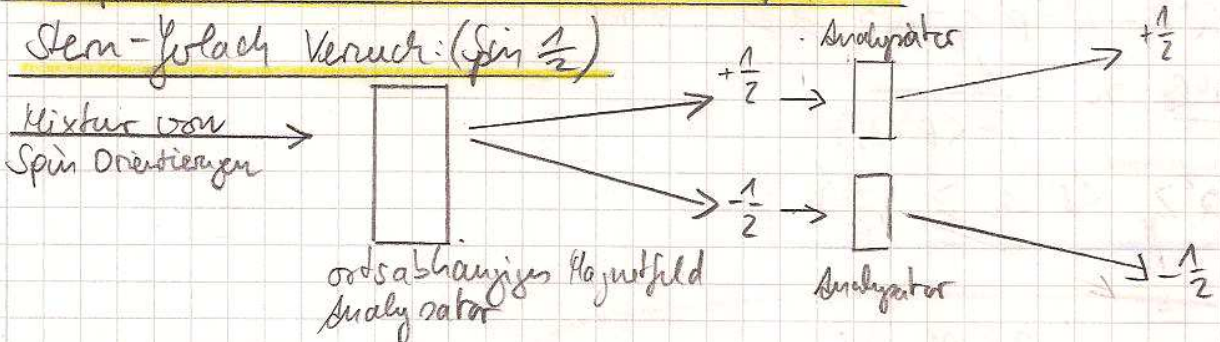 Stern-Gerlach Versuch: (Spin 1/2)
Mixtur von
Spin Orientierungen
+1/2
-1/2
ortsabhängiges Magnetfeld
Analysator
Analysator
Analysator
+1/2
-1/2